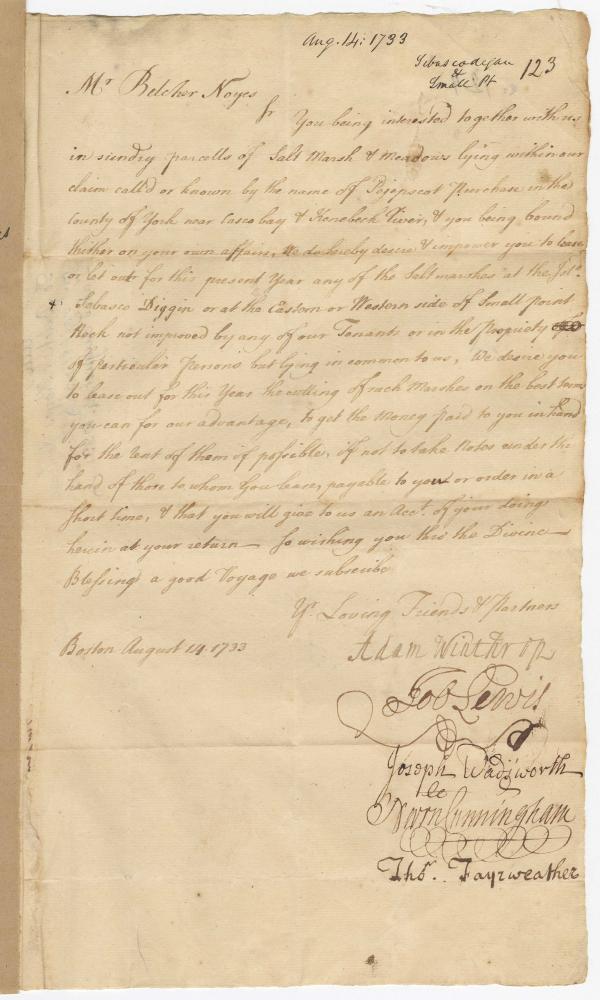 Aug. 14: 1733
Sebascodegan
&
Small Pt
123
Mr Belcher Noyes
Sr You being interested together with us
in sundry parcells of Salt Marsh & Meadows lying within our
claim call'd or known by the name of Pejepscot Purchase in the
County of York near Casco bay & Kenebeck River, & you being bound
thither on your own affairs, We do hereby desire & impower you to lease
or let out for this present Year any of the Salt marshes at the
Sabasco Diggin or at the Eastern or Western side of Small point
Neck not improved by any of our Tenants or in the Propriety
of particular Persons but lying in common to us, We desire you
to lease out for this Year the cutting of such Marshes on the best terms
you can for our advantage, to get the Money paid to you in hand
for the Rent of them if possible, if not to take Notes under the
hand of those to whom you lease, payable to you or order in a
short time, & that you will give to us an Acct. of your doings
herein at your return - So wishing you thro the Divine
Blessing a good Voyage we subscribe
Yr Loving Friends & Partners
Boston August 14 1733
Adam Winthrop
Job Lewis
Joseph Wadsworth
Cunningham
Thos. Fayrweather